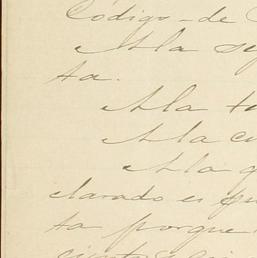 Código - de
A la se
ta.
A la t
A la cu
A la q
clarado es que
ta porque